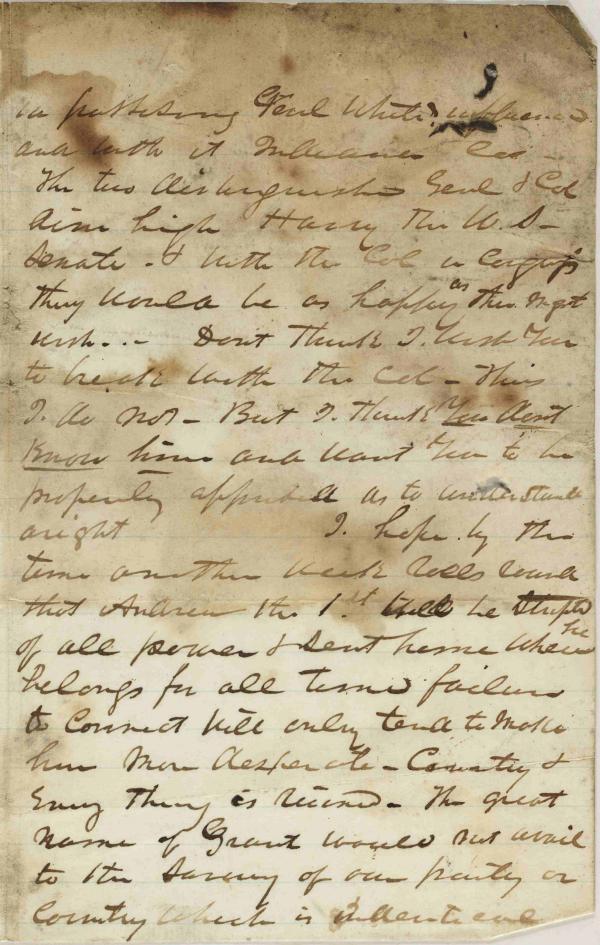 in possessing Genl White's influence
and with it Indiana
The two distinguished Genl & Col
aim high Harry the U.S.
Senate - & with the Col in Congress
they would be as happy as they might
wish - - Dont Think I wish You
to break with the Col - this
I do not - But I think You dont
Know him and want You to be
properly apprised as to understand
aright I hope by the
time another week rolls round
that Andrew the 1st will be stripped
of all power & sent home where he
belongs for all time failure
to Connect will only tend to make
him More desperate - Country &
Every Thing is ruined - The great
name of Grant would not avail
to the Saving of our party or
Country Which is identical